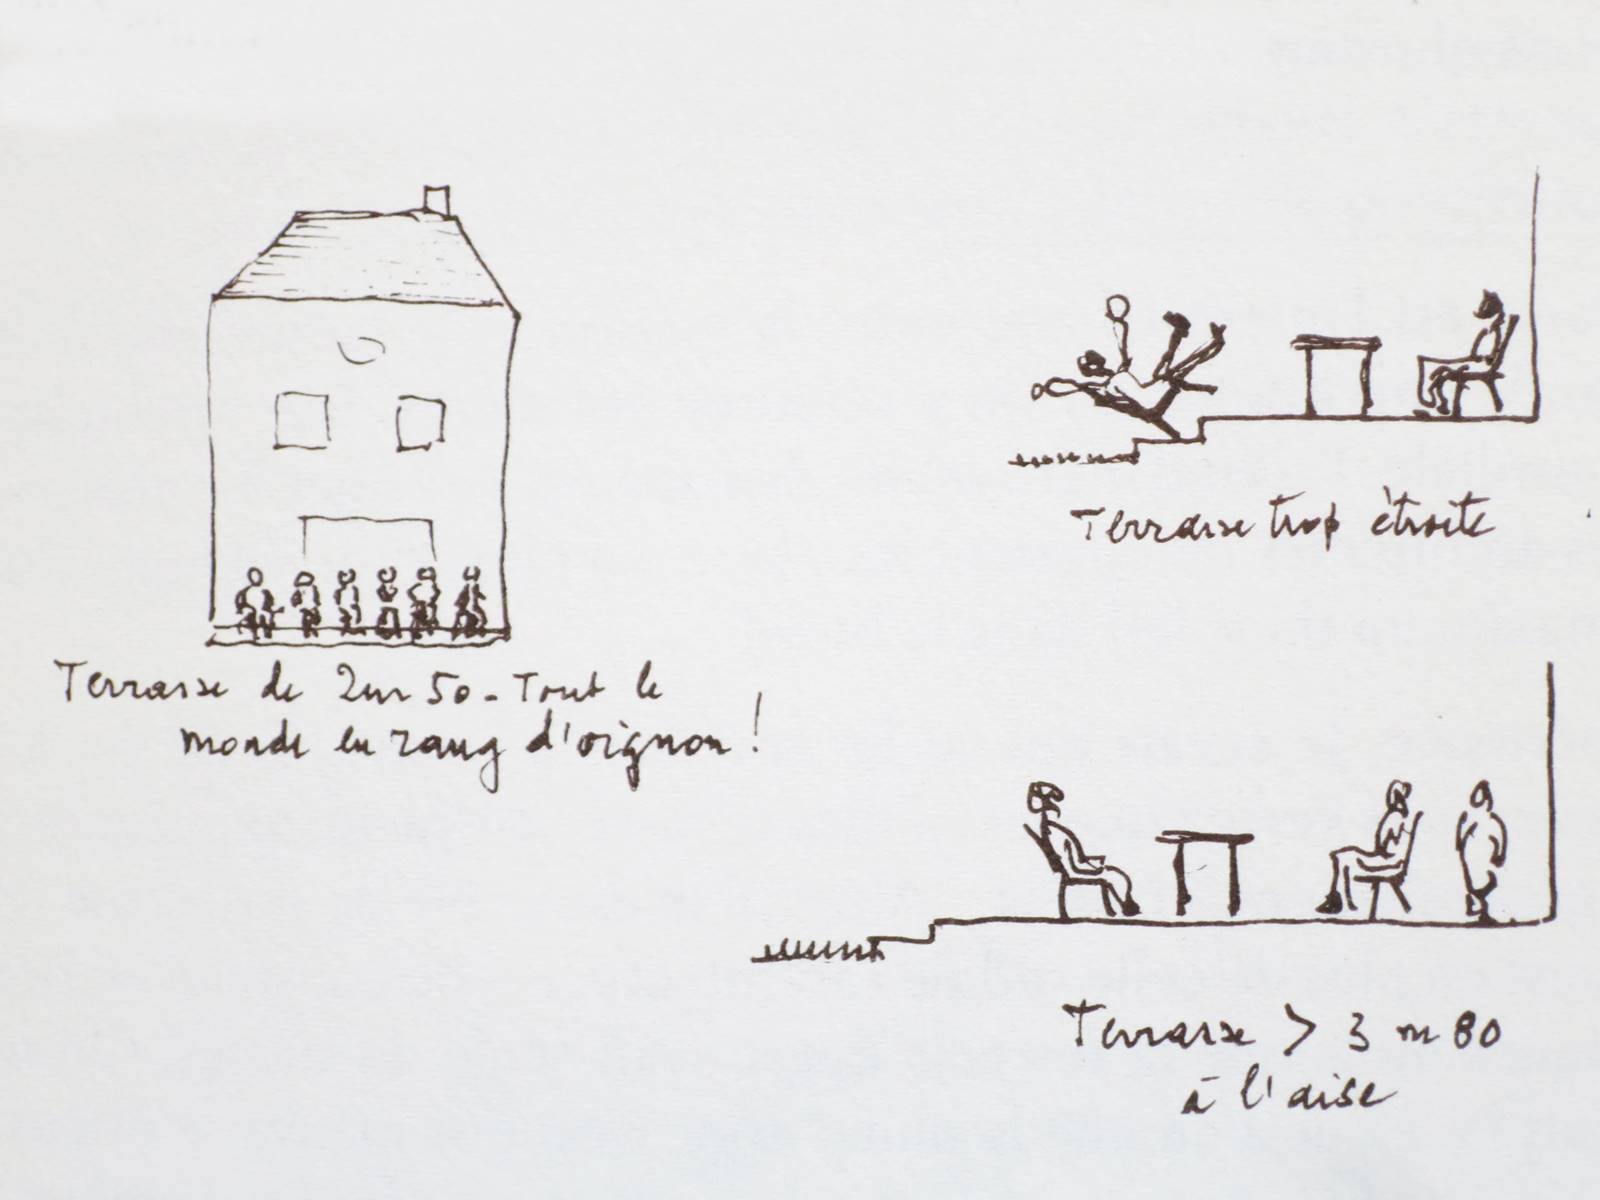 Terrasse de 2m50 - Tout le
monde en rang d'oignon !
Terrasse trop étroite
Terrasse > 3 m 80
à l'aise